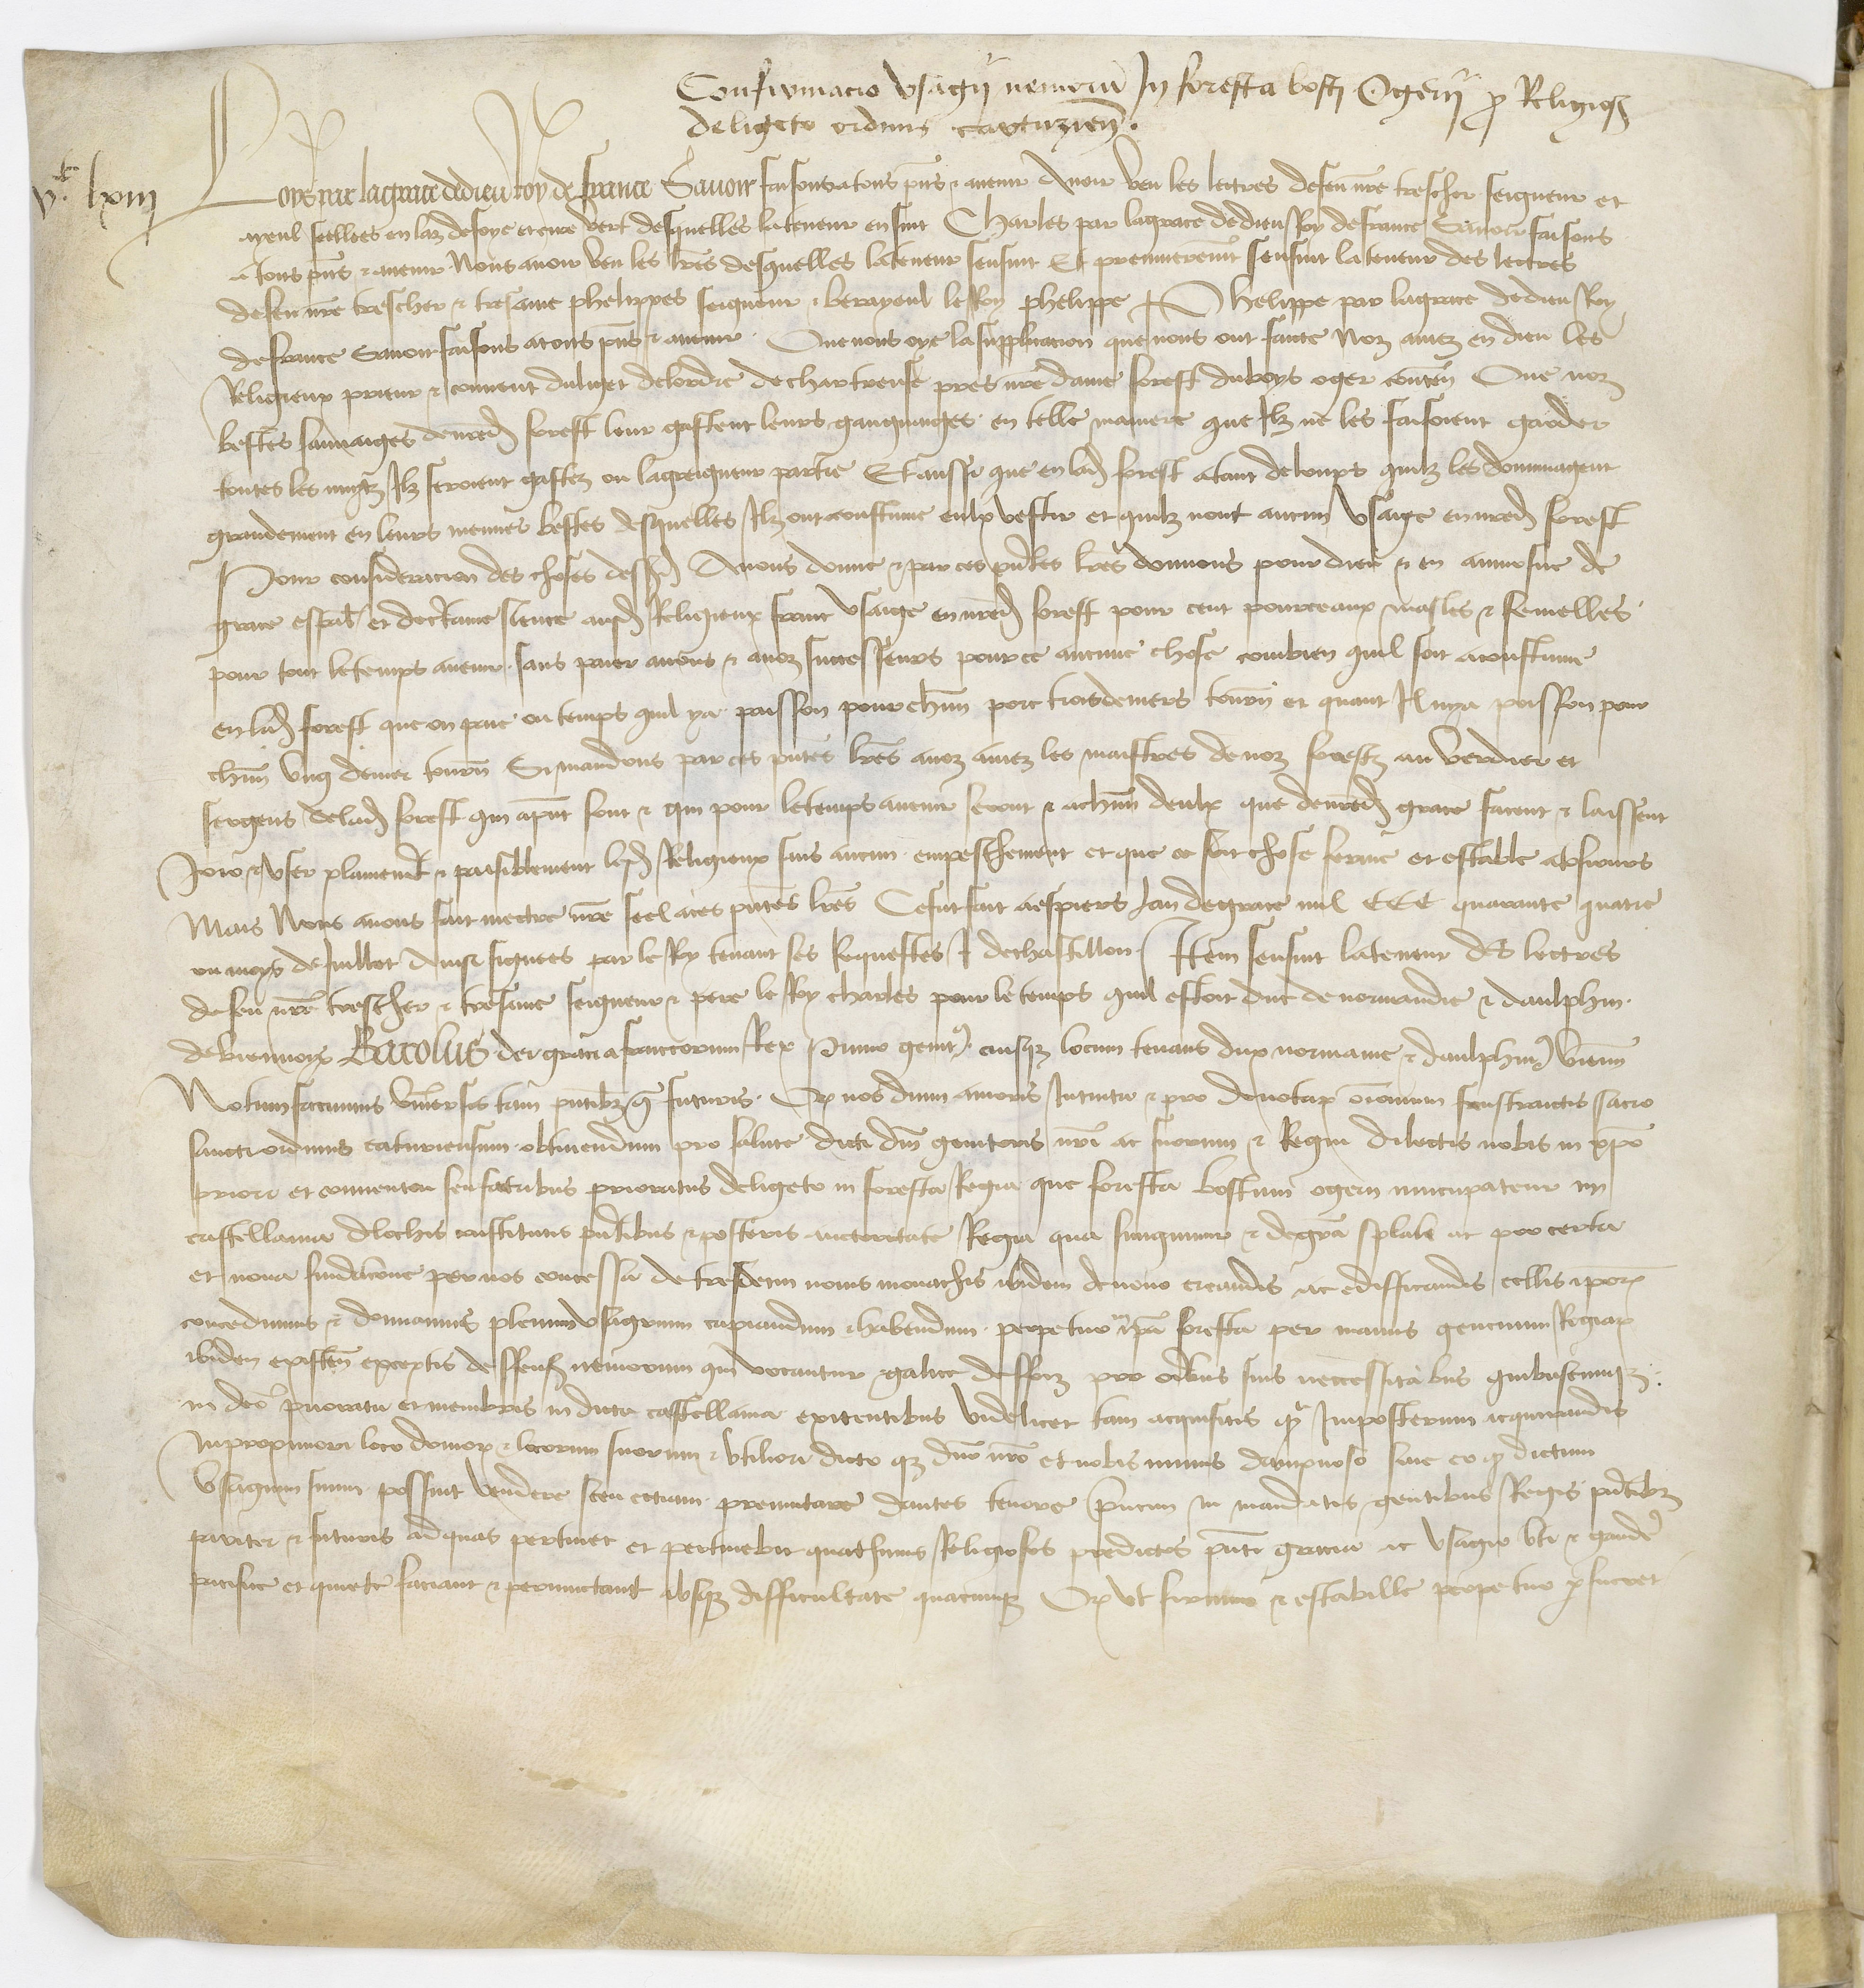 Confirmacio usagii nemoru in foresta bosci Ogerii p Religiosis
de ligeto ordinis cartuzien.
Vc lxiii
Loys par la grace de dieu roy de france Savoir faisons a tous pns & avenir Avoir veu les lectres de feu nre trescher seigneur et
ayeul seellees en laz de soye et cire vert desquelles la teneur ensuit Charles par la grace de dieu Roy de france Savoir faisons
a tous pns & avenir Nous avoir veu les lres desquelles la teneur sensuit Et premierement sensuit la teneur des lectres
de feu nre trescher & tresame phelippes seigneur & besayeul le Roy phelippe Phelippe par la grace de dieu Roy
de france Savoir faisons a tous pns & avenir Que nous oye la supplicacion que nous ont faicte Noz amez en dieu les
Religieux prieur & couvent du liget de lordre de chartreuse pres nre dame forest du boys oger conten Que noz
bestes sauvaiges de nred forest leur gastent leurs gaignaiges en telle maniere que Ilz ne les faisoient garder
toutes les nuytz Ilz seroient gastez ou la greigneur partie Et aussi que en lad forest a tant de loups quilz les dommagent
grandement en leurs menues bestes desquelles Ilz ont acoustume eulx vestir et quilz nont aucun usaige en nred forest
Pour consideracion des choses dessd Avons donne & par ces pntes lres donnons pour dieu & en aumosne de
grace espal et de certaine science ausd Religieux franc usaige en nred forest pour cent pourceaux masles & femelles
pour tout le temps avenir sans paier a nous & a noz successeurs pour ce aucune chose combien quil soit acoustume
en lad forest que on paie ou temps quil ya paisson pour chun porc trois deniers tourn et quant Il nya paisson pour
chun ung denier tourn Si mandons par ces pntes lres a noz amez les maistres de noz forestz au verdier et
sergens de lad forest qui a pnt sont & qui pour le temps avenir seront & a chun deulx que de nred grace facent & laissent
Joir & user plainemt & paisiblement lesd Religieux sans aucun empeschement et que ce soit chose ferme et estable a tousiours
Mais Nous avons fait mectre nre seel a ces pntes lres Ce fut fait a espiers lan de grace mil CCC quarante quatre
ou moys de juillet Ainsi signees par le Roy tenant ses Requestes J de chastillon Item sensuit la teneur des lectres
de feu nre trescher & tresame seigneur & pere le Roy charles pour le temps quil estoit duc de normandie & daulphin
de viennoys Karolus dei gracia francorum Rex Primo genit9 eiusqz locum tenans dux normanie & daulphin9 vienn
Notum facimus universis tam pntibz qz futuris Qz nos divini amoris Intuitu & pro devotarz oronum fratrum sacro
sancti ordinis caturiensium obtinendum pro salute dicti dni genitoris nri ac suorum & Regni dilectis nobis in xpo
priori et conventui seu fratribus prioratus de ligeto in foresta Regia que foresta boscum ogerii nuncupateur in
castellania de lochis constitutis pntibus & posteris auctoritate Regia qua fungimur & de gra spiali ac pro certa
et nova fundacione per nos concessa de tresdecim novis monachis ibidem de novo creandis ac edifficandis cellis ipor
concedimus & donnamus plenum usagium capiandum & habendum perpetuo in ipa foresta per manus gencium Regiarz
ibidem existen exceptis deffensis nemorum qui vocantur galice deffoiz pro oibus suis neccessitabus quibuscumqz
in dco prioratu et membris in dicta castellania exitentibus videlicet tam acquisitis qz Imposterum acquirandis
In propinquiori loco domorz & locorum suorum & utiliori dicto qz dno nro et nobis minus dampnoso sine eo qz dictum
usagium suum possint vendere seu etiam premutare dantes tenore pncium in mandatis gentibus Regis pntibz
pariter & futuris ad quas pertinet et pertinebit quathinus Religiosos predictos pnti gracia ac usagio uti & gaudere
pacifice et quiete faciant & permictant absqz difficultate quacumqz Qz ut firmum & estabille perpetuo p furet